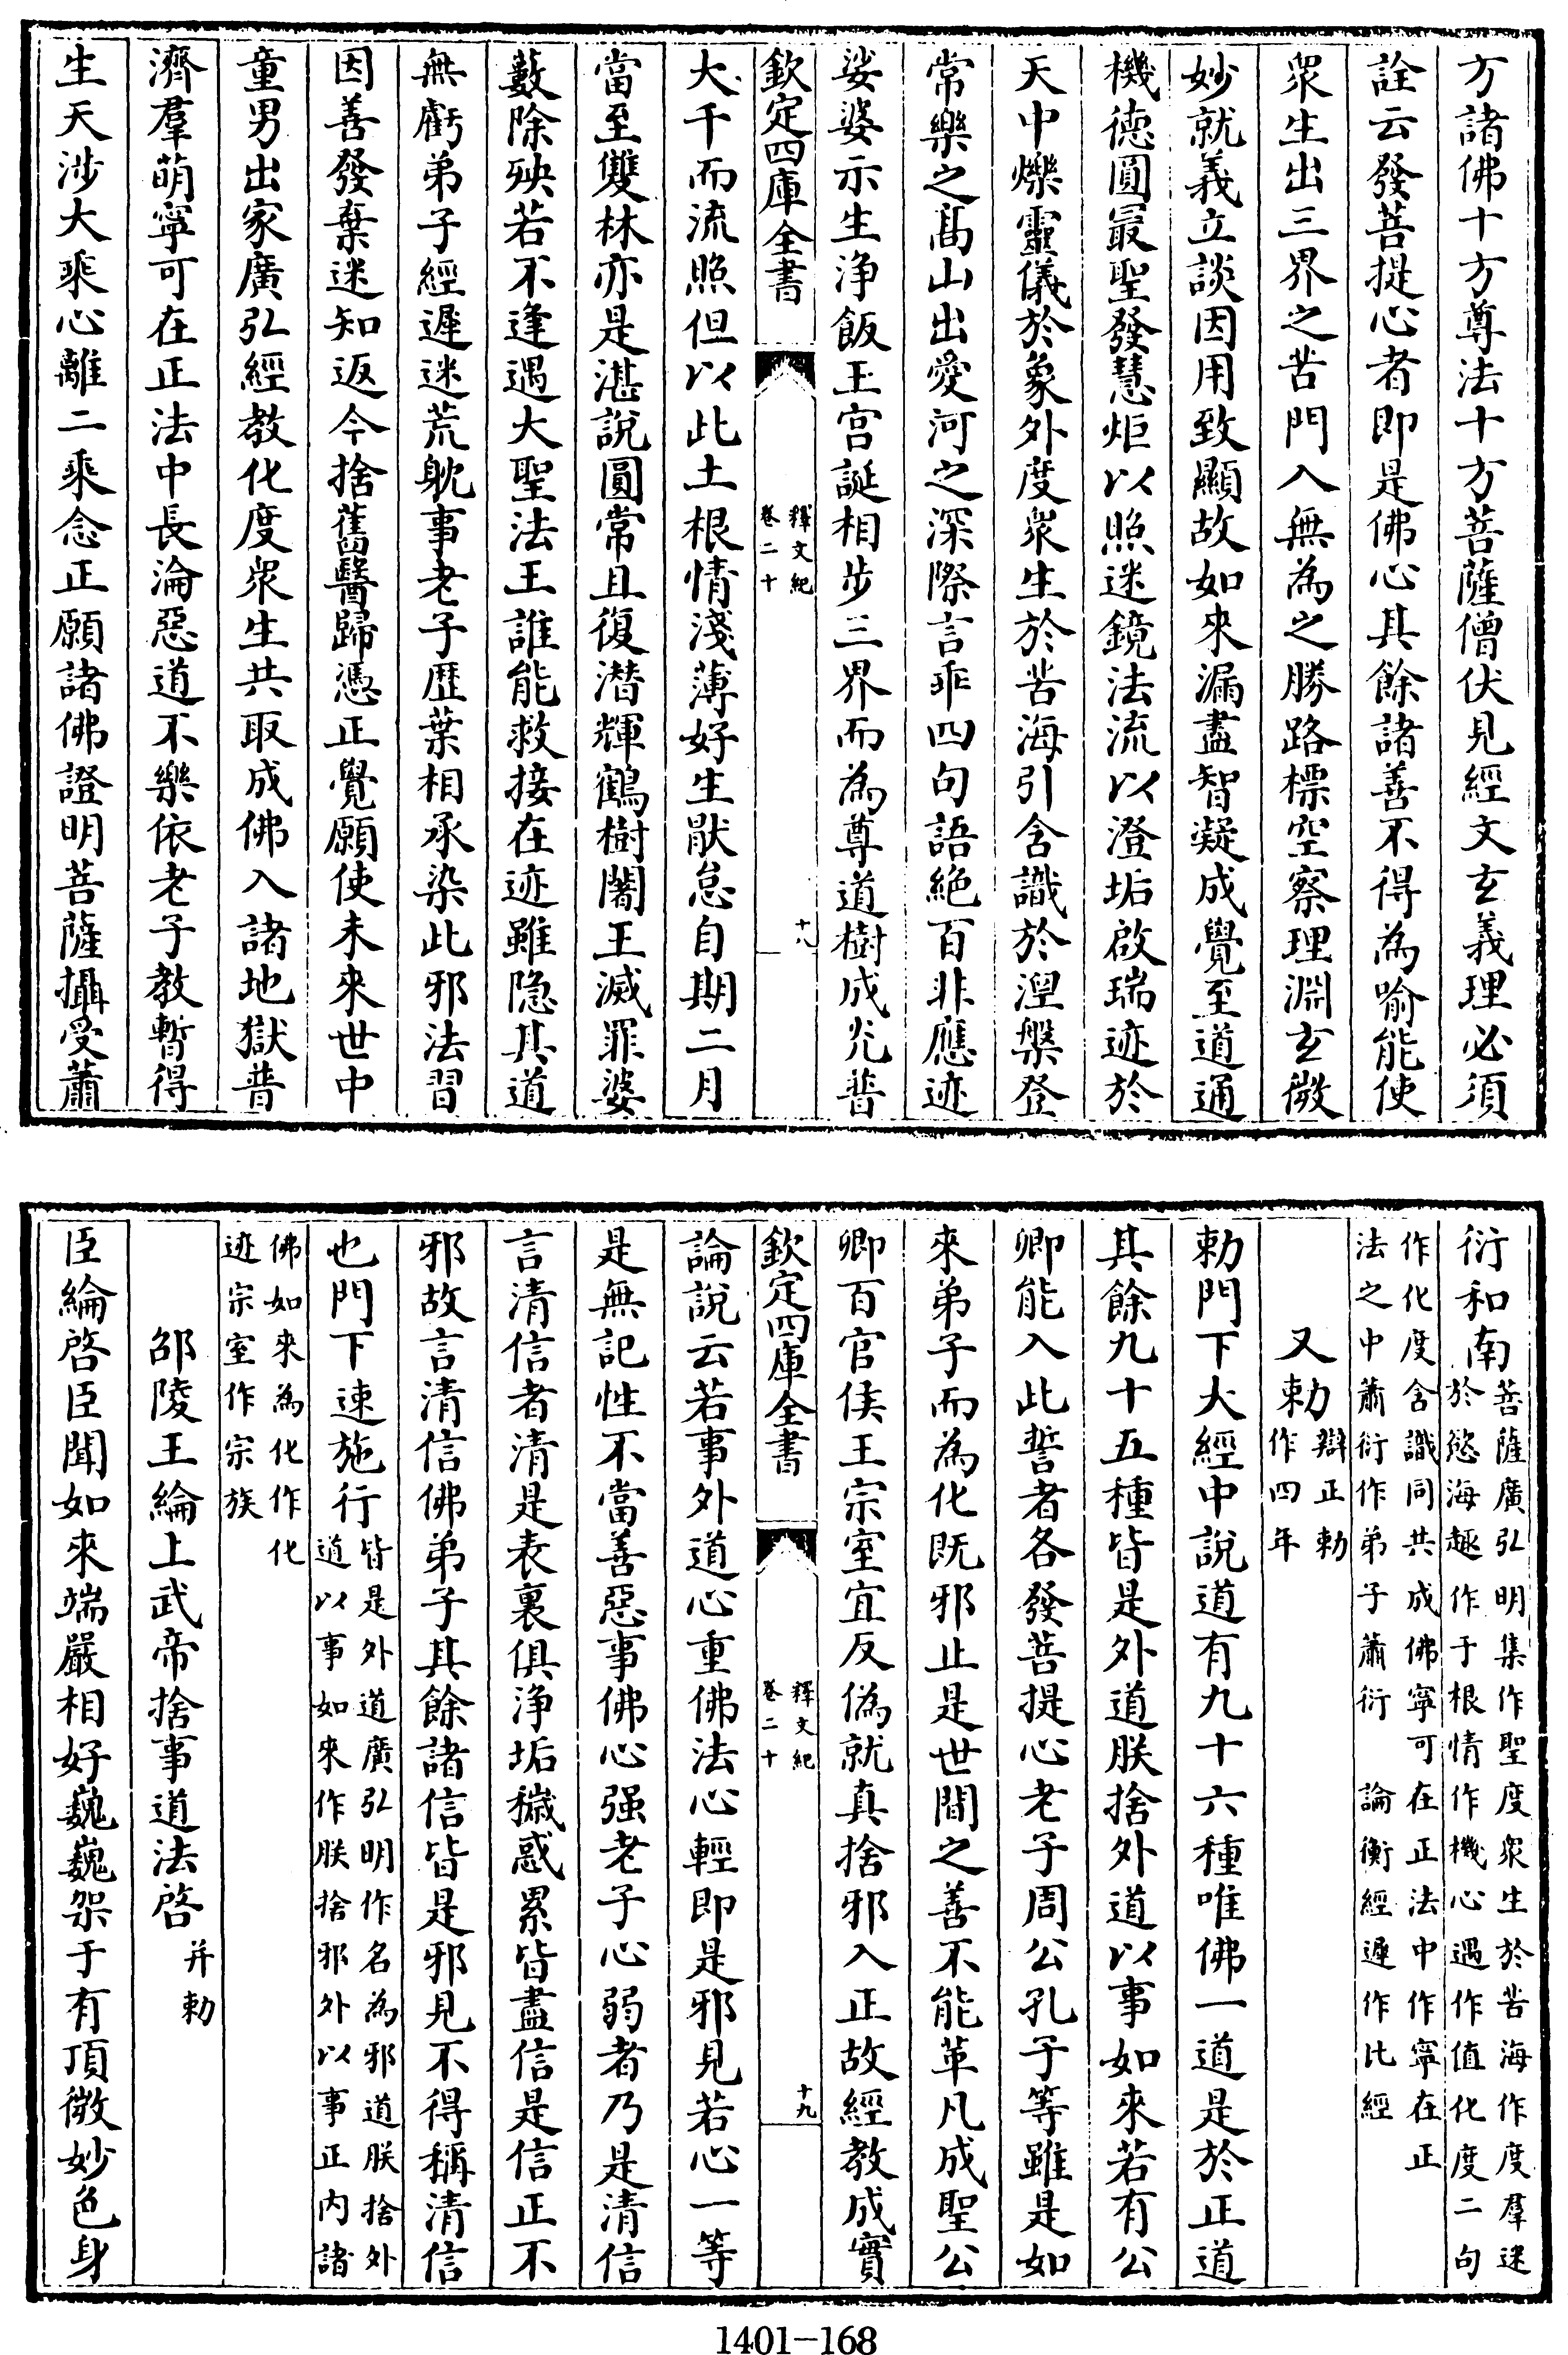 方諸佛十方尊法十方菩薩僧伏見經文玄義理必須
詮云發菩提心者即是佛心其餘諸善不得為喻能使
衆生出三界之苦門入無為之勝路標空察理淵玄微
妙就義立談因用致顯故如來漏盡智凝成覺至道通
機德圓最聖發慧炬以照迷鏡法流以澄垢啟瑞迹於
天中爍靈儀於象外度衆生於苦海引含識於湼槃登
常樂之髙山出愛河之深際言乖四句語絶百非應迹
娑婆示生浄飯王宫誕相步三界而為尊道樹成光普
欽定四庫全書
釋文紀
卷二十
十八
大千而流照但以此土根情淺薄好生猒怠自期二月
當至雙林亦是湛說圓常且復潛輝鶴樹闍王滅罪婆
藪除殃若不逢遇大聖法王誰能救接在迹雖隐其道
無虧弟子經遲迷荒躭事老子歴葉相承染此邪法習
因善發棄迷知返今捨舊醫歸憑正覺願使未來世中
童男出家廣弘經教化度衆生共取成佛入諸地獄普
濟羣萌寧可在正法中長淪惡道不樂依老子教暫得
生天涉大乘心離二乘念正願諸佛證明菩薩攝受蕭
衍和南菩薩廣弘明集作聖度衆生於苦海作度羣迷
於慾海趣作于根情作機心遇作值化度二句
作化度含識同共成佛寧可在正法中作寧在正
法之中蕭衍作弟子蕭衍 論衡經遲作比經
又勅辯正勅
作四年
勅門下大經中說道有九十六種唯佛一道是於正道
其餘九十五種皆是外道朕捨外道以事如來若有公
卿能入此誓者各發菩提心老子周公孔子等雖是如
來弟子而為化既邪止是世間之善不能革凡成聖公
卿百官侯王宗室宜反偽就真捨邪入正故經教成實
欽定四庫全書
釋文紀
卷二十
十九
論說云若事外道心重佛法心輕即是邪見若心一等
是無記性不當善惡事佛心强老子心弱者乃是清信
言清信者清是表裏俱浄垢穢惑累皆盡信是信正不
邪故言清信佛弟子其餘諸信皆是邪見不得稱清信
也門下速施行皆是外道廣弘明作名為邪道朕捨外
道以事如來作朕捨邪外以事正内諸
佛如來為化作化
迹宗室作宗族
邵陵王綸上武帝捨事道法啓并勅
臣綸啓臣聞如來端嚴相好巍巍架于有頂微妙色身
1401-168